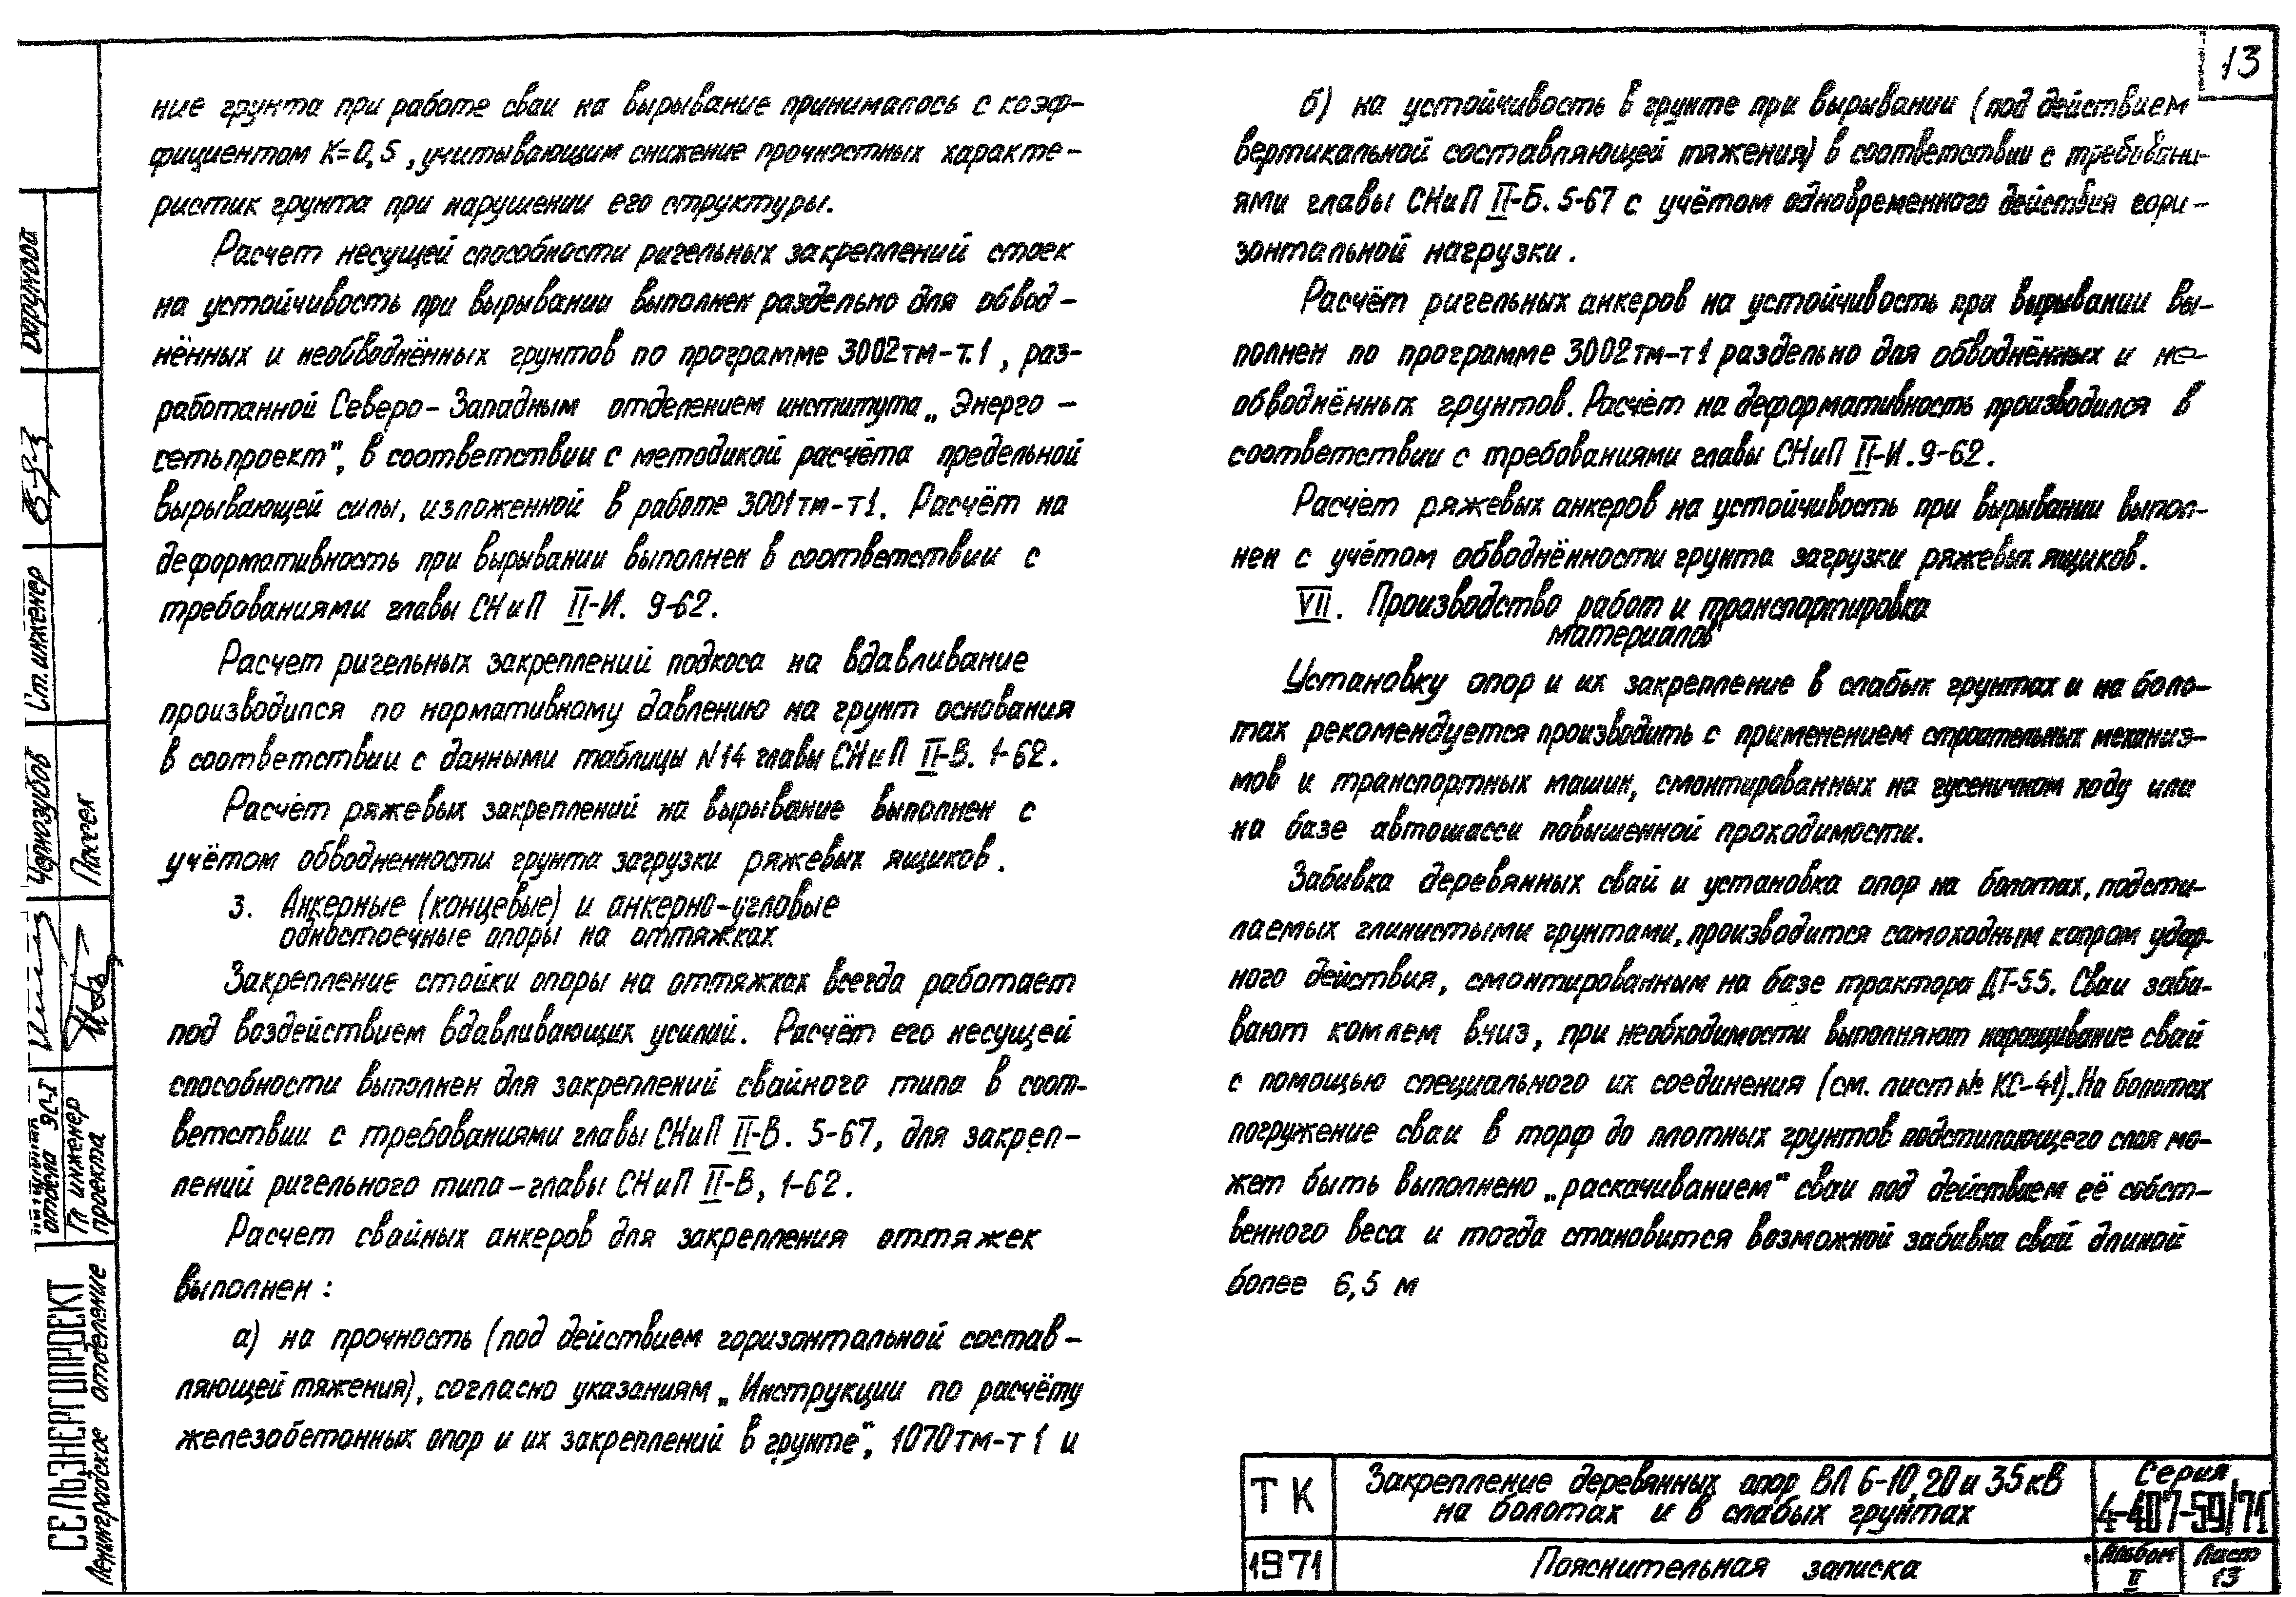 13
ние грунта при работе сваи на вырывание принималось с коэф-
фициентом К=0,5, учитывающим снижение прочностных характе-
ристик грунта при нарушении его структуры.
Расчет несущей способности ригельных закреплений стоек
на устойчивость при вырывании выполнен раздельно для обвод-
нённых и необводнённых грунтов по программе 3002тм-т.1, раз-
работанной Северо-Западным отделением института „Энерго-
сетьпроект", в соответствии с методикой расчёта предельной
вырывающей силы, изложенной в работе 3001тм-т1. Расчёт на
деформативность при вырывании выполнен в соответствии с
требованиями главы СНиП II-И. 9-62.
Расчет ригельных закреплений подкоса на вдавливание
производился по нормативному давлению на грунт основания
в соответствии с данными таблицы N14 главы СНиП II-В. 1-62.
Расчёт ряжевых закреплений на вырывание выполнен с
учётом обводненности грунта загрузки ряжевых ящиков.
3. Анкерные (концевые) и анкерно-угловые
одностоечные опоры на оттяжках
Закрепление стойки опоры на оттяжках всегда работает
под воздействием вдавливающих усилий. Расчёт его несущей
способности выполнен для закреплений свайного типа в соот-
ветствии с требованиями главы СНиП II-В. 5-67, для закреп-
лений ригельного типа-главы СНиП II-В, 1-62.
Расчет свайных анкеров для закрепления оттяжек
выполнен:
а) на прочность (под действием горизонтальной состав-
ляющей тяжения), согласно указаниям „Инструкции по расчёту
железобетонных опор и их закреплений в грунте", 1070тм-т1 и
б) на устойчивость в грунте при вырывании (под действием
вертикальной составляющей тяжения) в соответствии с требовани-
ями главы СНиП II-Б. 5-67 с учётом одновременного действия гори-
зонтальной нагрузки.
Расчёт ригельных анкеров на устойчивость при вырывании вы-
полнен по программе 3002тм-т1 раздельно для обводнённых и не-
обводнённых грунтов. Расчёт на деформативность производился в
соответствии с требованиями главы СНиП II-И.9-62.
Расчёт ряжевых анкеров на устойчивость при вырывании выпол-
нен с учётом обводнённости грунта загрузки ряжевых ящиков.
VII. Производство работ и транспортировка
материалов
Установку опор и их закрепление в слабых грунтах и на боло-
тах рекомендуется производить с применением строительных механиз-
мов и транспортных машин, смонтированных на гусеничном ходу или
на базе автошасси повышенной проходимости.
Забивка деревянных свай и установка опор на болотах, подсти-
лаемых глинистыми грунтами, производится самоходным копром удар-
ного действия, смонтированным на базе трактора ДТ-55. Сваи заби-
вают комлем вниз, при необходимости выполняют наращивание свай
с помощью специального их соединения (см. лист № КС-41). На болотах
погружение сваи в торф до плотных грунтов подстилающего слоя мо-
жет быть выполнено „раскачиванием" сваи под действием её собст-
венного веса и тогда становится возможной забивка свай длиной
более 6,5 м
ТК
Закрепление деревянных опор ВЛ 6-10, 20 и 35кВ
на болотах и в слабых грунтах
Серия
4-407-59/71
1971
Пояснительная записка
Альбом
II
Лист
13
СЕЛЬЭНЕРГОПРОЕКТ
Ленинградское отделение
отдела ЭС-1
Гл инженер
проекта
Чернозубов
Ст. инженер